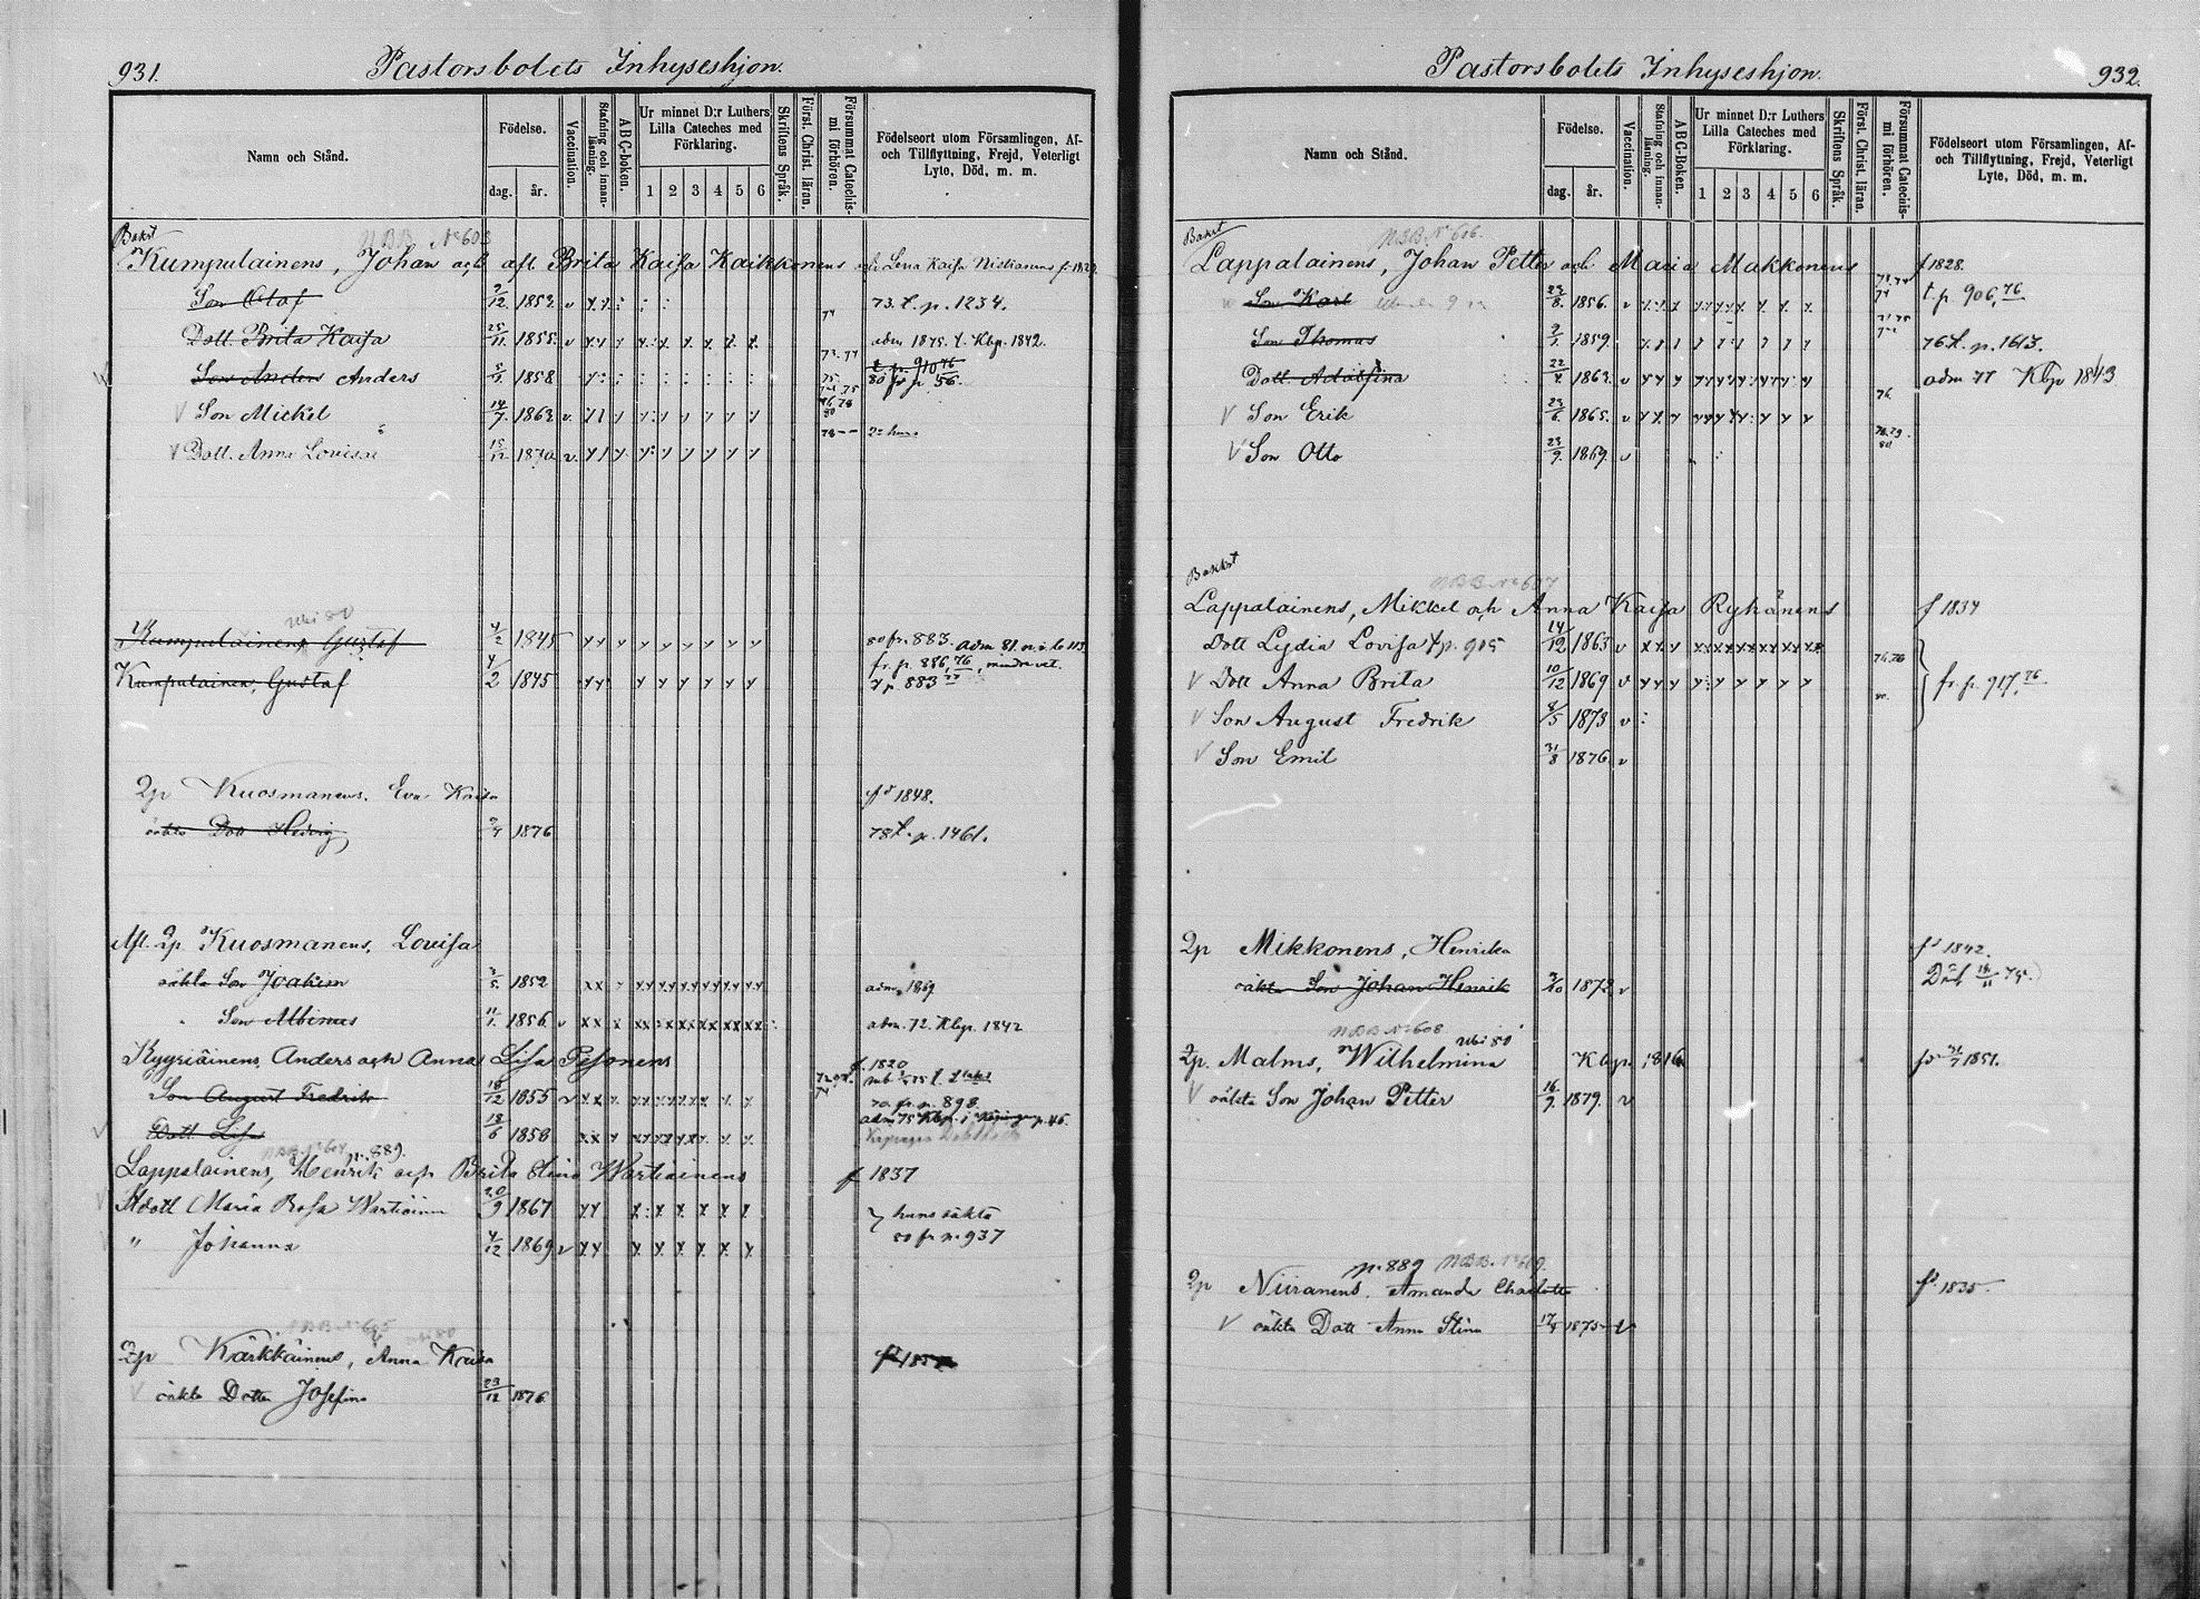 931.
Pastorsbolets Inhyseshjon.
Namn och Stånd.
Födelse.
dag. år.
Vaccination.
Stafning och innanläsning.
ABC-boken.
Ur minnet D:r Luthers Lilla Cateches med Förklaring.
1 2 3 4 5 6
Skriftens Språk.
Först. Christ. läran.
Försummat Catechismi förhören.
Födelseort utom Församlingen, Af- och Tillflyttning, Frejd, Veterligt Lyte, Död, m. m.
Bakst
NBB. N:o 603
Kumpulainens, Johan och afl. Brita Kaisa Kaikkonens och Lena Kaisa Niskanens
Son Olof 2/12. 1852 v 73. t. p. 1234.
Dott Brita Kaisa 25/11. 1855. v adm 1875. t. Kbp. 1842.
Son Anders Anders 1858 80 fr p 56.
V Son Mickel 14/7. 1862 v.
V Dott. Anna Lovisa 15/12 1870 v.
ubi 80
Kumpulainens Gustaf 4/2 1845 80 fr. 883. adm 81.
Kumpulainen, Gustaf 4/2 1845 fr. p. 886, 76, mindre vet. t p. 883 77
Qp Kuosmanens, Eva Kaisa fd 1848.
oäkta Dott Hedvig 1876 78 t. p. 1461.
Afl. Qp Kuosmanens, Lovisa
oäkta Son Joakim 1852 adm. 1869
Son Albinus 11/1. 1856. v adm. 72. Kbp. 1842
Kyyriäinens, Anders och Anna Lisa Pesonens f. 1820
Son August Fredrik 18/12 1855 v 70. fr. p. 898.
Dott Lisa 18/6 1858 adm 75 Kbp. i Kajana p. 46.
p. 889.
Lappalainens, Henrik och Brita Stina Wartiainens f 1837
Stdott Maria Rosa Wartiainen 20/9 1867 } hans oäkta
" Johanna 4/12 1869 v 80 fr p. 937
Qp Kärkkäinens, Anna Kaisa
oäkta Dotter Josefina 23/12 1876.
Pastorsbolets Inhyseshjon.
932.
Namn och Stånd.
Födelse.
dag. år.
Vaccination.
Stafning och innanläsning.
ABC-Boken.
Ur minnet D:r Luthers Lilla Cateches med Förklaring.
1 2 3 4 5 6
Skriftens Språk.
Först. Christ. läran.
Försummat Catechismi förhören.
Födelseort utom Församlingen, Af- och Tillflyttning, Frejd, Veterligt Lyte, Död, m. m.
Bakst
NBB. N:o 606.
Lappalainens, Johan Petter och Maria Makkonens f 1828.
Son Karl 23/8. 1856. v t. p 906, 76
Son Thomas 1859. 76 t. p. 1613.
Dott Adolfina 22/4. 1862. v adm 77 Kbp 1843
V Son Erik 23/6. 1865. v
V Son Otto 23/9. 1869. v
Bakst
NBB N:o 607
Lappalainens, Mikkel och Anna Kaisa Ryhänens f 1834
Dott Lydia Lovisa t p. 905 14/12 1863 v
V Dott Anna Brita 10/12 1869 v } fr. p. 917, 76
V Son August Fredrik 8/5 1873 v
V Son Emil 31/8 1876 v
Qp Mikkonens, Henrika fd 1842.
oäkta Son Johan Henrik 1872 v
NBB N:o 608 ubi 80
Qp. Malms, Wilhelmina Kbp. 1816 1851.
V oäkta Son Johan Petter 16/9. 1879. v
p. 889 NBB. N:o 609.
Qp Niiranens, Amanda Charlotta fd. 1835.
V oäkta Dott Anna Stina 1875 v